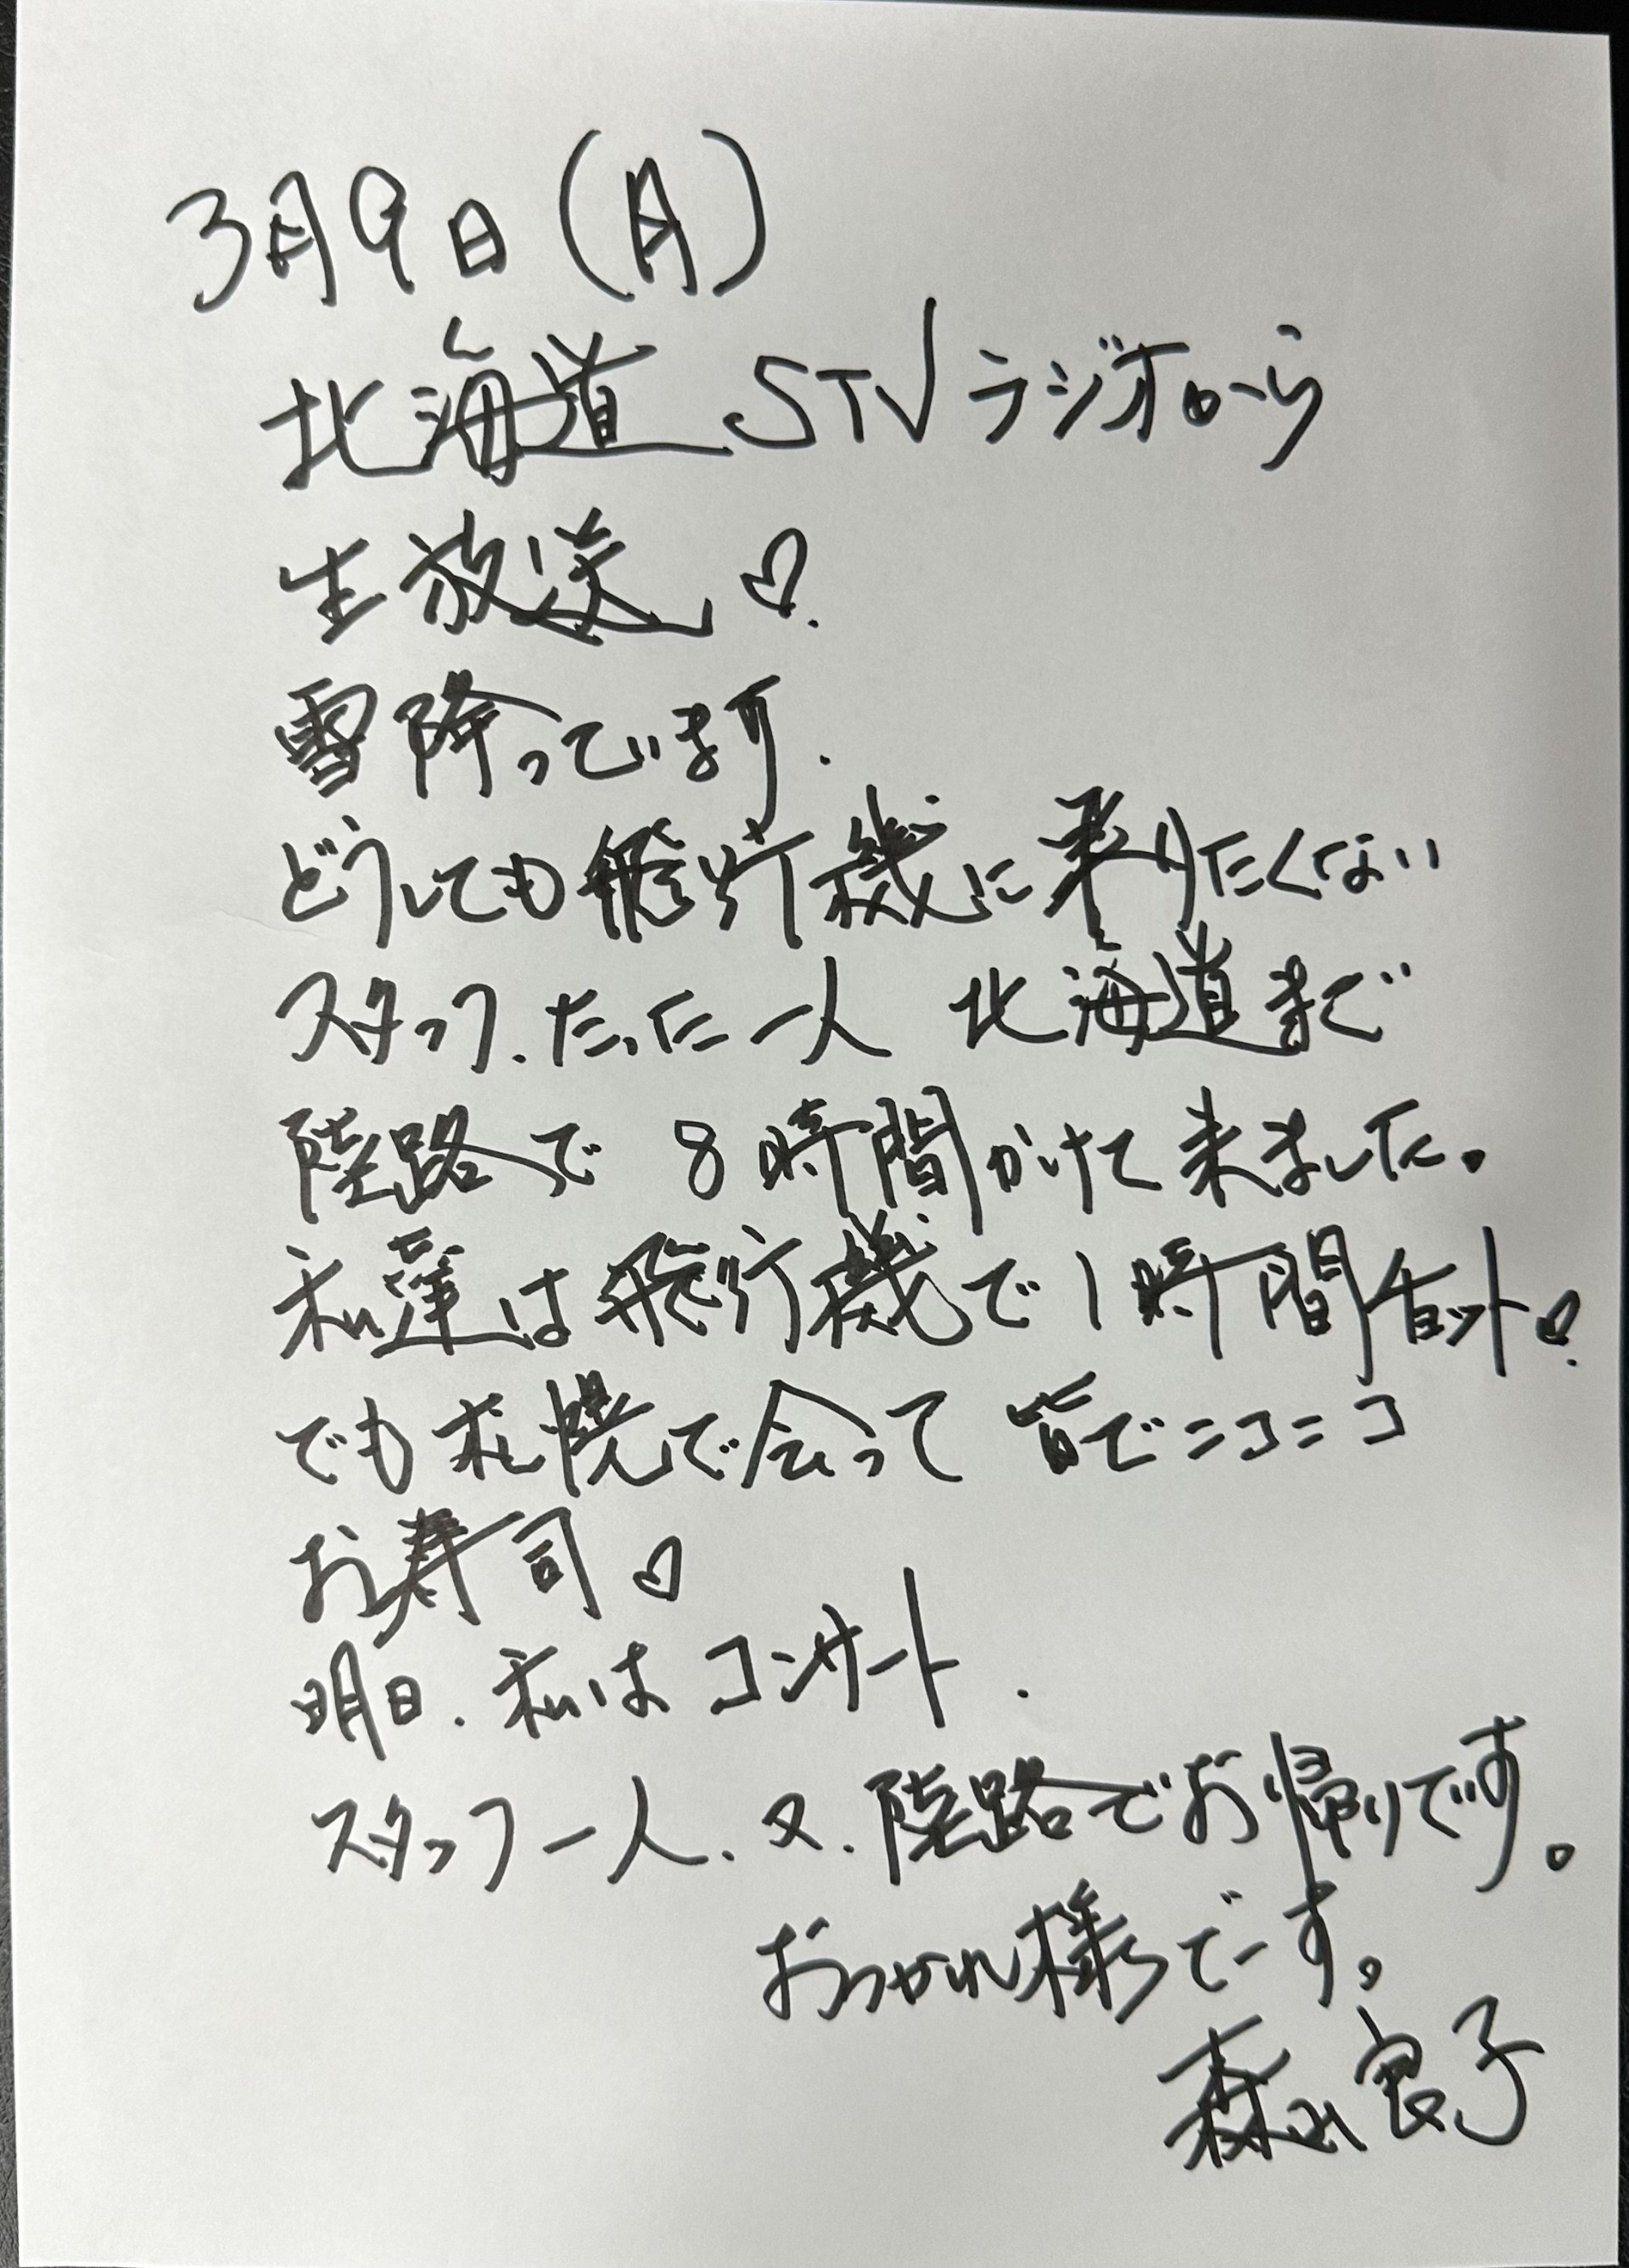 3月9日(月)
北海道STVラジオから
生放送♡.
雪降っています.
どうしても飛行機に乗りたくない
スタッフ.たった一人 北海道まで
陸路で 8時間かけて来ました。
私達は飛行機で1時間チョット♡.
でも札幌で会って 皆でニコニコ
お寿司♡
明日.私はコンサート.
スタッフ一人.又.陸路でお帰りです。
おつかれ様でーす。
森山良子